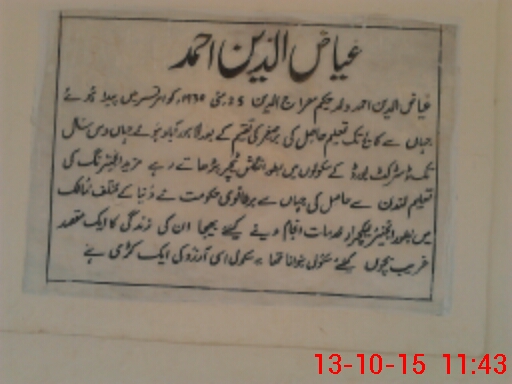 عیاض الدین احمد
عیاض الدین احمد ولد حکیم معراج الدین 25 مئی کو امرتسر میں پیدا ہوئے
جہاں سے کالج تک تعلیم حاصل کی برصغیر کی تقسیم کے بعد لاہور آباد ہوئے جہاں دس سال
تک ڈسٹرکٹ بورڈ کے سکولوں میں بطور انگلش ٹیچر پڑھاتے رہے مزید انجینئرنگ کی
تعلیم لندن سے حاصل کی جہاں سے برطانوی حکومت نے دنیا کے مختلف ممالک
میں بطور انجینئر لیکچرار خدمات انجام دینے کیلئے بھیجا ان کی زندگی کا ایک مقصد
غریب بچوں کیلئے سکول بنوانا تھا یہ سکول اسی آرزو کی ایک کڑی ہے
13-10-15 11:43